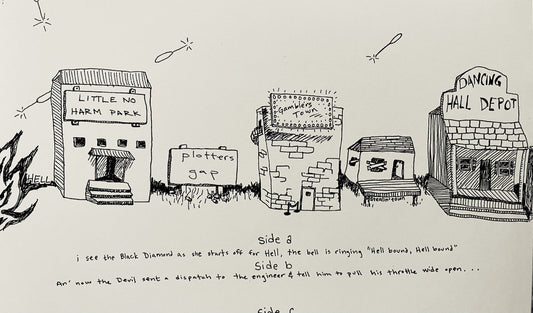 DANCING
HALL DEPOT
LITTLE NO
HARM PARK
Gamblers
Town
plotters
gap
HELL
Side a
i see the Black Diamond as she starts off for Hell, the bell is ringing "Hell bound, Hell bound"
Side b
An' now the Devil sent a dispatch to the engineer & tell him to pull his throttle wide open...
Side c